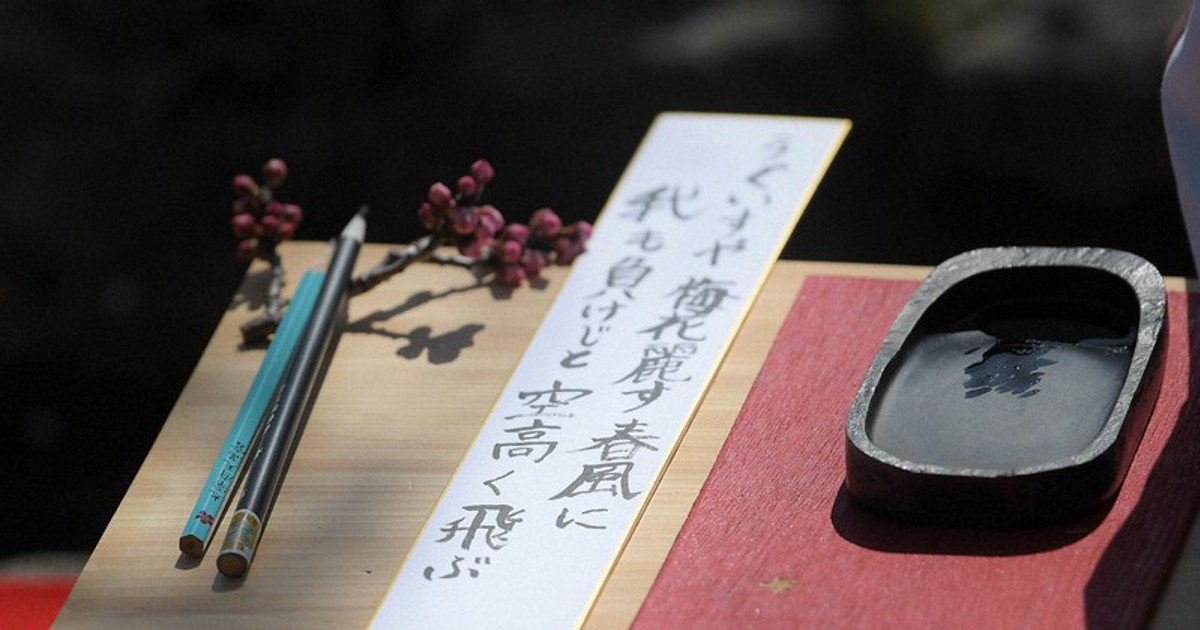 うぐいすや梅花麗す春風に
我も負けじと空高く飛ぶ